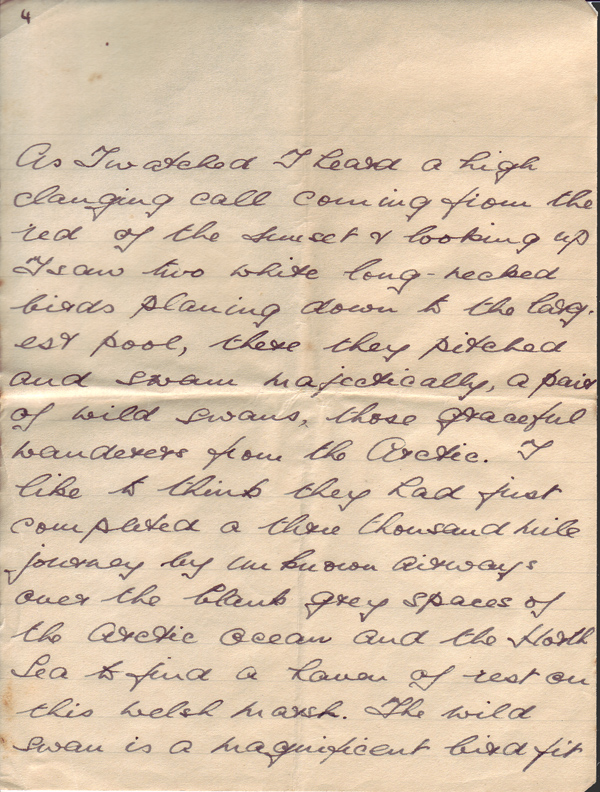 4
As I watched I heard a high
clanging call coming from the
red of the sunset & looking up
I saw two white long-necked
birds planing down to the larg-
est pool, there they pitched
and swam majectically, a pair
of wild swans, those graceful
wanderers from the Arctic. I
like to think they had just
completed a three thousand mile
journey by unknown airways
over the blank grey spaces of
the Arctic ocean and the North
Sea to find a haven of rest on
this welsh marsh. The wild
swan is a magnificent bird fit